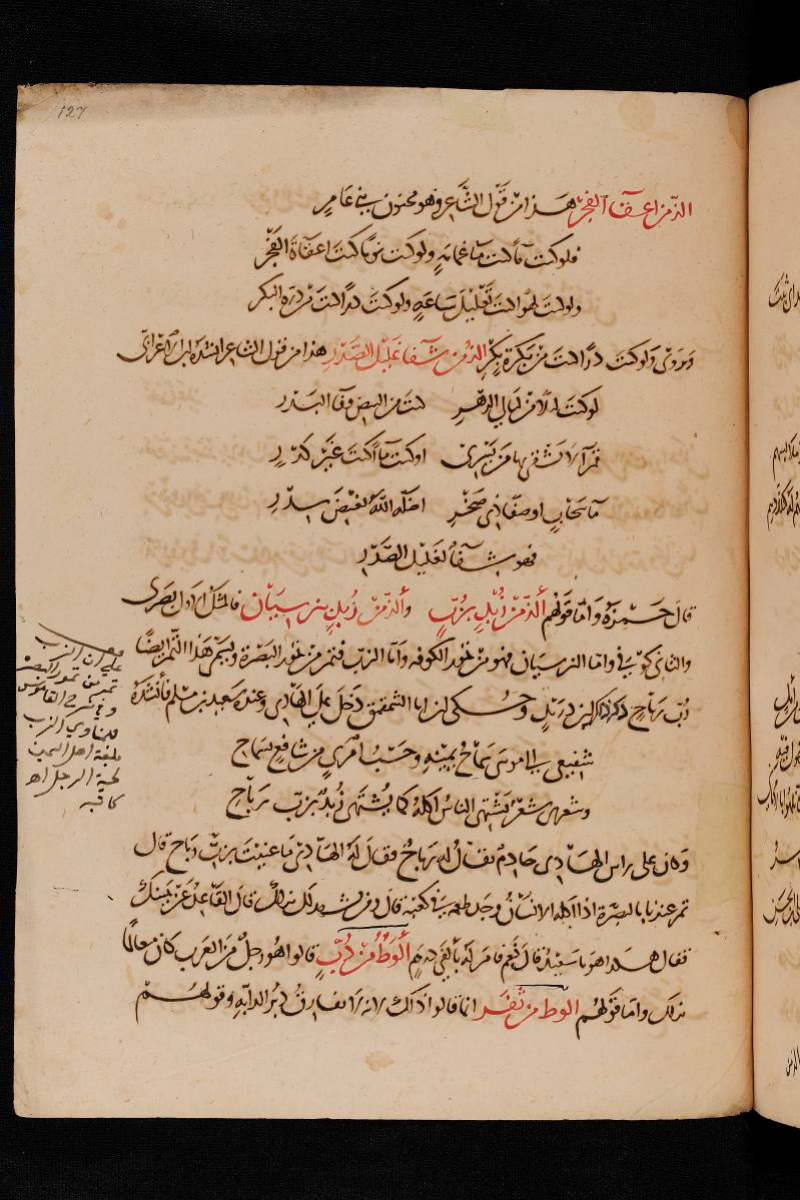 127
الذّ من اغفاءة الفجر هذا من قول الشاعر وهو مجنون بني عامر
فلو كنت ماءً كنت ماء غمامةٍ ولو كنت نومًا كنت اغفاءة الفجر
ولو كنت لهوا كنت تعليل ساعةٍ ولو كنت درًّا كنت من درة البكر
ويروى ولو كنت درًّا كنت من بكرة بكرٍ الذّ من شفاء غليل الصدر هذا من قول الشاعر انشده ابن الاعرابي
لو كنت ليلا من ليالي الدهر كنت من البيض وفاء البدر
قمراء لا يشقى بها من يسري او كنت ماء كنت غير كدرٍ
ماء سحابٍ او صفا ذي صخرِ اظله الله بغيض سدرِ
فهو شفاء لغليل الصدر
قال حمزة وامّا قولهم ألذّ من زُبْدٍ بزُبٍّ وألذّ من زُبدٍ بنرسيان فالمثل الاول بصرى
والثاني كوفي واما النرسيان فهو من تمور الكوفه وامّا الزب فتمر من تمور البصرة ويسمى هذا التمر ايضًا
زب رباح ذكر ذلك ابن دريدٍ وحُكى ان ابا الشمقمق دخل على الهادي وعنده سعيد بن سلم فأنشده
شفيعي الى موسى سماح يمينه وحسب امرئٍ من شافعٍ بسماح
وشعري شعرٌ يشتهي الناس اكله كما يشتهى زُبدٌ بزبّ رباح
وكان على راس الهادي خادم يقال له رباح فقال له الهادي ما عنيت بزبّ رباح قال
تمر عندنا بالبصرة اذا اكله الانسان وجد طعمه في كعبه قال ومن يشهد لك بذلك قال القاعد عن يمينك
فقال هكذا هو يا سعيد قال نعم فامر له بألفي درهم ألْوَطُ من دُبٍّ قالوا هو رجل من العرب كان معالمًا
بذلك وامّا قولهم الوط من ثفر انما قالوا ذاك لانه لا يفارق دبر الدابه وقولهم
على ان الزب
تمر من تمور البصرة
وفي شرح القاموس
للمناوي الزب
بلغة اهل اليمن
لحية الرجل اهـ
كاتبه